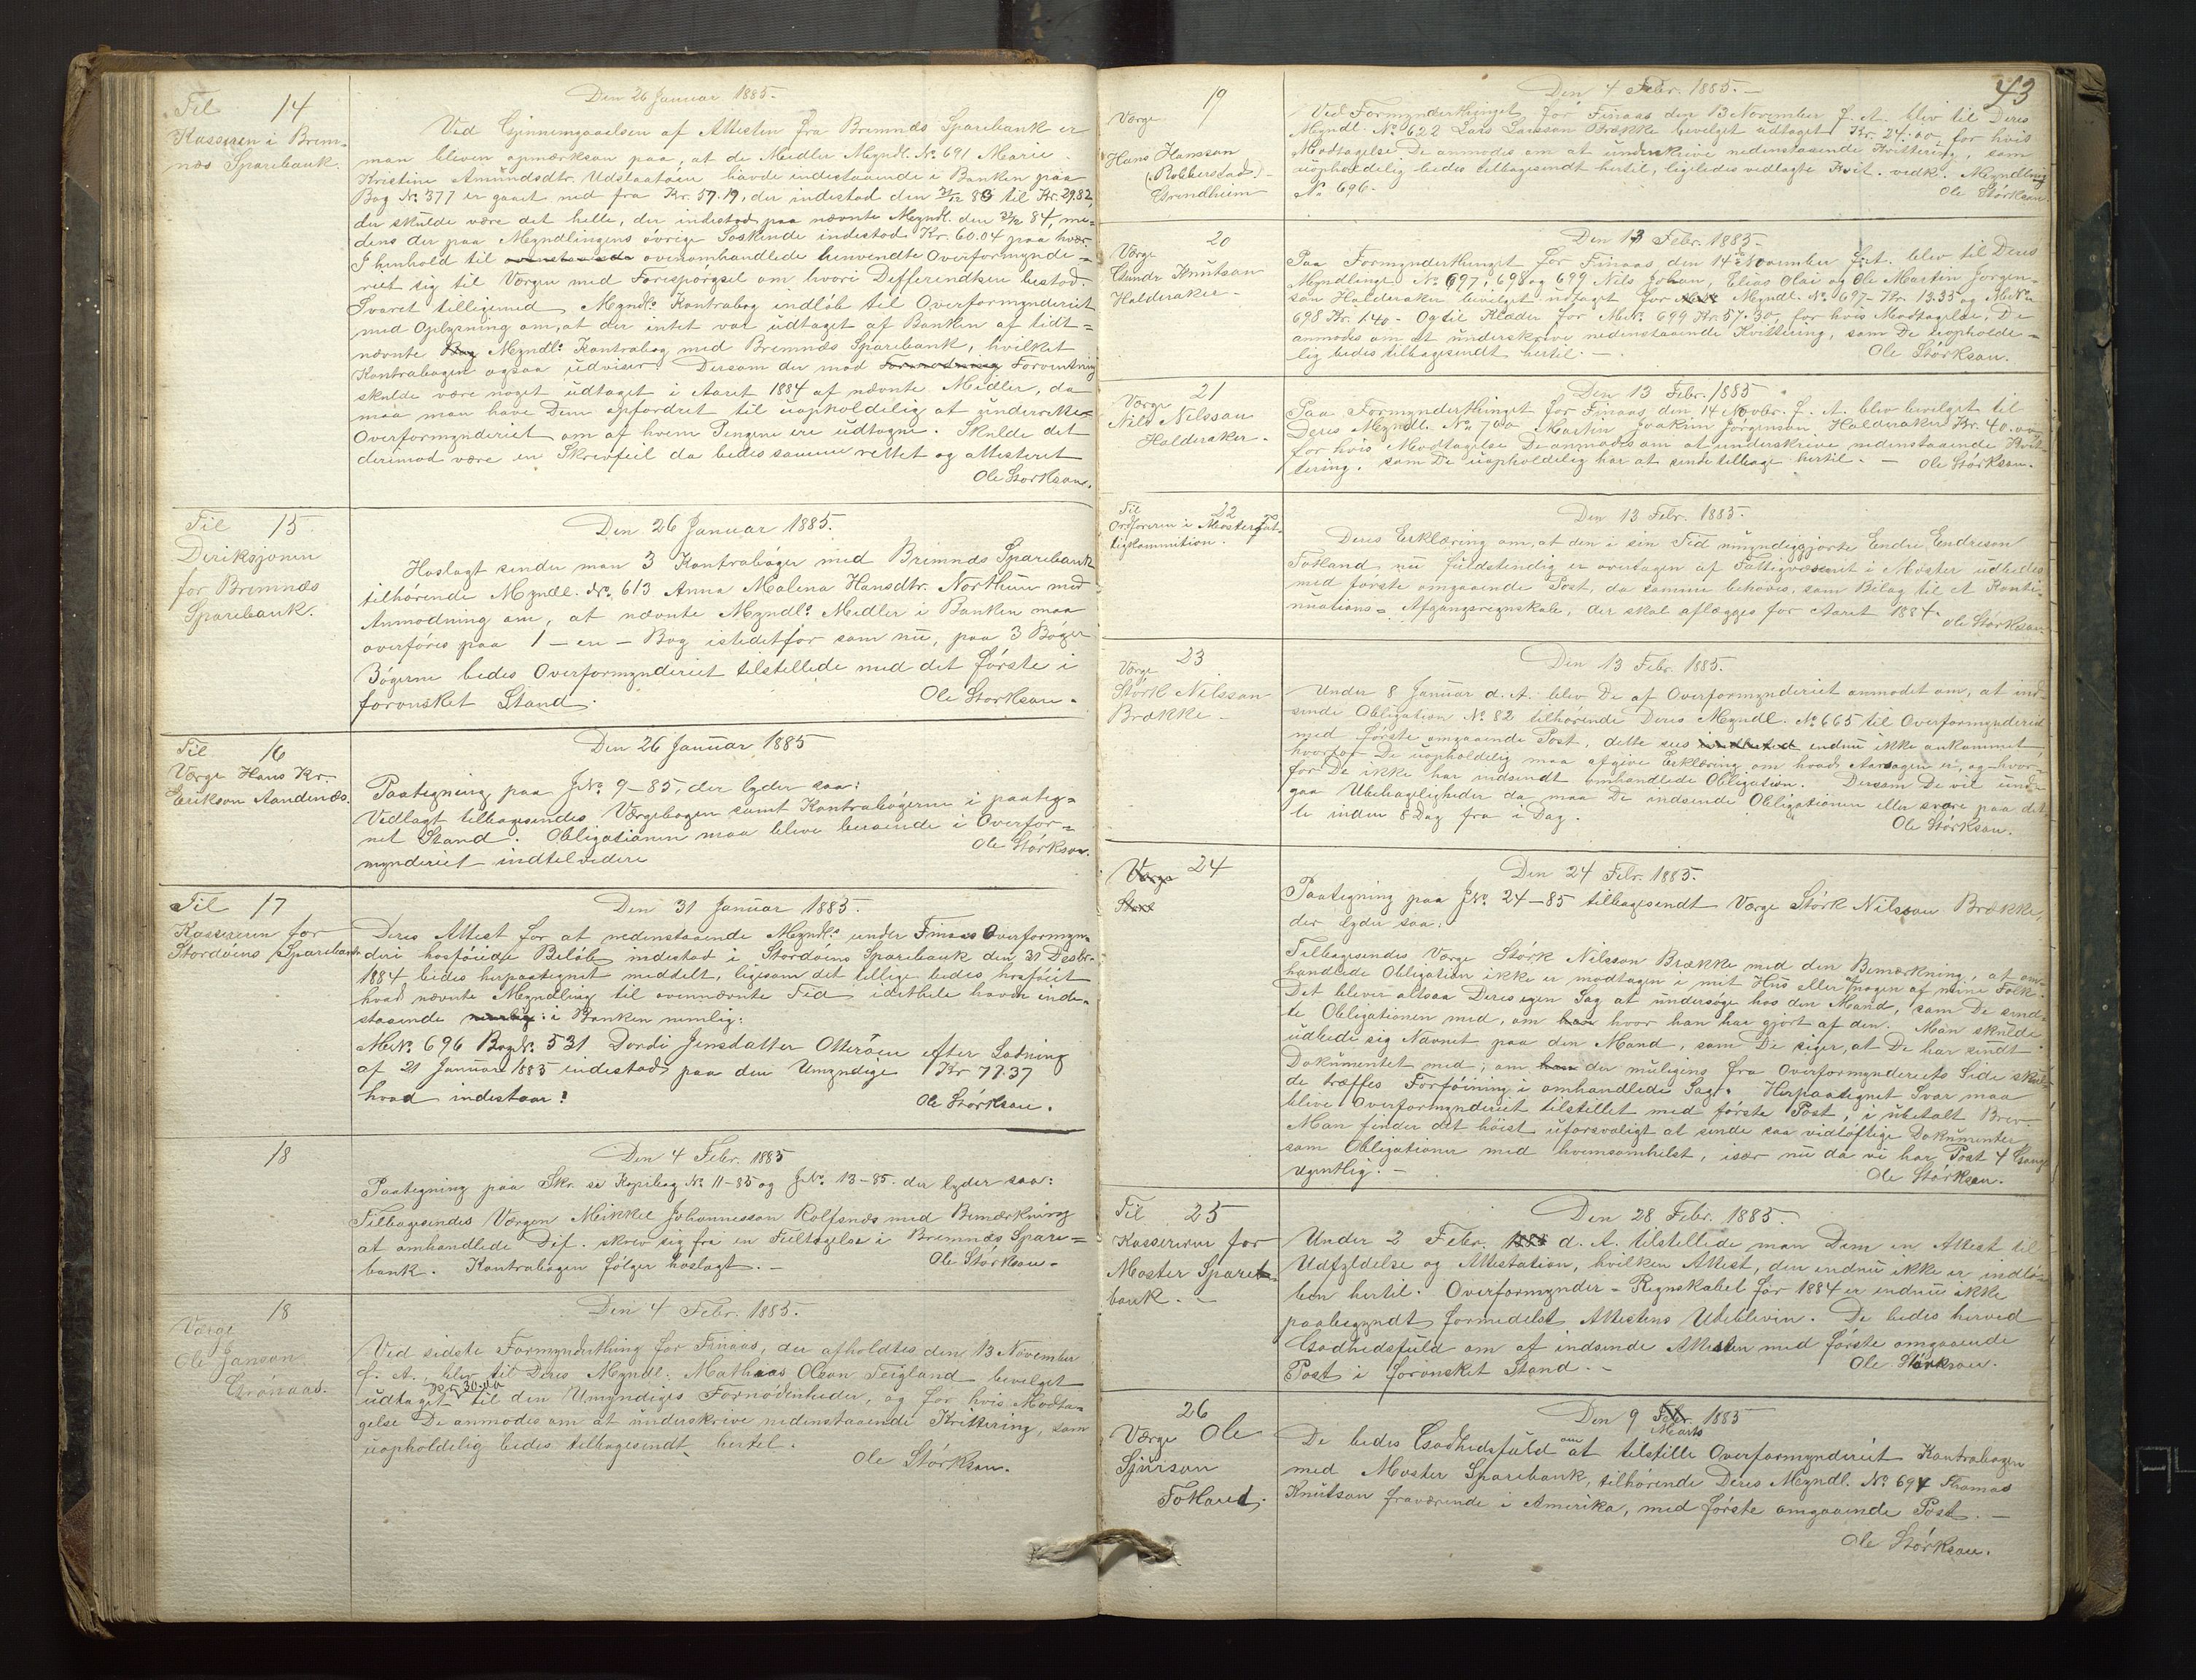 Til 14
Kasseren i Brem-
næs Sparebank.
Den 26 Januar 1885.
Ved Gjennemgaaelsen af Attesten fra Bremnæs Sparebank er
man bleven opmærksom paa, at de Midler Myndl. No. 691 Marie
Kristine Amundsdtr. Udslaatöen havde indestaaende i Banken paa
Bog No. 377 er gaaet ned fra Kr. 57.19, der indestod den 31/12 83 til Kr. 29.82,
der skulde være det hele, der indestod paa nævnte Myndl. den 31/12 84, me-
dens der paa Myndlingens övrige Söskende indestod Kr. 60.04 paa hver.
I henhold til ovenomhandlede henvendte Overformynde-
riet sig til Værgen med Forespörgsel om hvori Defferendtsen bestod.
Svaret tilligemed Myndls. Kontrabog indlöb til Overformynderiet
med Oplysning om, at der intet var udtaget af Banken af tidt-
nævnte Myndls. Kontrabog med Bremnæs Sparebank, hvilket
Kontrabogen ogsaa udviser. Dersom der mod Formodning Forventning
skulde være noget udtaget i Aaret 1884 af nævnte Midler, da
maa man have Dem opfordret til uopholdelig at underrette
Overformynderiet om af hvem Pengene ere udtagne. Skulde det
derimod være en Skrivfeil da bedes samme rettet og attesteret
Ole Störkson.
Til 15
Deriksjonen
for Bremnæs
Sparebank.
Den 26 Januar 1885.
Hoslagt sender man 3 Kontraböger med Bremnæs Sparebank
tilhørende Myndl. No. 613 Anna Malena Hansdtr. Northun med
Anmodning om, at nævnte Myndls. Midler i Banken maa
overföres paa 1 - en - Bog istedetfor som nu, paa 3 Böger
Bögerne bedes Overformynderiet tilstillede med det förste i
forönsket Stand.
Ole Störkson.
Til 16
Værge Hans Kr.
Erikson Aandenæs.
Den 26 Januar 1885
Paategning paa JNo. 9-85, der lyder saa:
Vedlagt tilbagesendes Værgebogen samt Kontrabögerne i paateg-
net Stand. Obligationen maa blive beroende i Overfor-
mynderiet indtilvidere
Ole Störkson.
Til 17
Kassereren for
Stordöens Sparebank
Den 31 Januar 1885.
Deres Attest for at nedenstaaende Myndls. under Finaas Overformyn-
deri hosföiede Belöb indestod i Stordöens Sparebank den 31 Desbr.
1884 bedes herpaategnet meddelt, ligesom det tillige bedes hosföiet
hvad nævnte Myndling til ovennævnte Tid idethele havde inde-
staaende i Banken nemlig:
MNo. 696 BogNo. 531 Dordi Jensdatter Otteröen efter Ladning
af 21 Januar 1885 indestod paa den Umyndige Kr 77.37
hvad indestaar?
Ole Störkson.
18
Den 4 Febr. 1885
Paategning paa Skr. se Kopibog No. 11-85 og JNo. 13-85. der lyder saa:
Tilbagesendes Værgen Mikkel Johannesson Rolfsnæs med Bemærkning
at omhandlede Dif. skrev sig fra en Feiltagelse i Bremnæs Spare-
bank. Kontrabogen fölger hoslagt.
Ole Störkson.
18
Værge
Ole Janson
Grönaas.
Den 4 Febr. 1885.
Ved sidste Formynderthing for Finaas, der afholdtes den 13 November
f. A., blev til Deres Myndl. Mathias Olson Teigland bevelget
udtaget Kr 30.00 til den Umyndiges Fornödenheder, og for hvis Modta-
gelse De anmodes om at underskrive nedenstaaende Kvittering, som
uopholdelig bedes tilbagesendt hertil.
Ole Störkson.
43
19
Værge
Hans Hansson
(Robberstad)
Grindheim
Den 4 Febr. 1885.
Ved Formynderthinget for Finaas den 13 November f. A. blev til Deres
Myndl. No. 622 Lars Larsson Brække bevelget udtaget Kr. 24.00, for hvis
Modtagelse De anmodes om at underskrive nedenstaaende Kvittering, som
uopholdelig bedes tilbagesendt hertil, ligeledes vedlagte Kvit. vedk. Myndling
No. 696.
Ole Störkson.
20
Værge
Gunder Knutson
Halderaker
Den 13 Febr. 1885.
Paa Formynderthinget for Finaas den 14 November f. A. blev til Deres
Myndlinger No. 697, 698 og 699 Nils Johan, Elias Olai og Ole Martin Jörgen-
son Halderaker bevelget udtaget for Myndl. No. 697 - Kr. 13.35 og MNo.
698 Kr. 1.40 - Og til Klæder for MNo. 699 Kr. 57.30, for hvis Modtagelse, De
anmodes om at underskrive nedenstaaende Kvittering, som De uopholde-
lig bedes tilbagesendt hertil.
Ole Störkson.
21
Værge
Nils Nilsson
Halderaker.
Den 13 Febr. 1885
Paa Formynderthinget for Finaas den 14 Novbr. f. A. blev bevelget til
Deres Myndl. No. 700 Martin Joakim Jörgenson Halderaker Kr. 40.00
for hvis Modtagelse De anmodes om at underskrive nedenstaaende Kvit-
tering, som De uopholdelig har at sende tilbage hertil.
Ole Störkson.
Til 22
Ordföreren i Moster Fat-
tigkommition.
Den 13 Febr. 1885.
Deres Erklæring om, at den i sin Tid umyndiggjorte Endre Endreson
Totland nu fuldstendig er overtagen af Fattigvæsenet i Moster udbedes
med förste omgaaende Post, da samme behöves, som Bilag til et Konti-
nuations- Afgangsregnskab, der skal aflægges for Aaret 1884.
Ole Störkson
23
Værge
Störk Nilsson
Brække
Den 13 Febr. 1885.
Under 8 Januar d. A. blev De af Overformynderiet anmodet om, at ind-
sende Obligation No. 82 tilhörende Deres Myndl. No. 665 til Overformynderiet
med förste omgaaende Post, dette sees endnu ikke ankommet,
hvorfor De uopholdelig maa afgive Erklæring om hvad Aarsagen er, og hvor-
for De ikke har indsendt omhandlede Obligation. Dersom De vil und-
gaa Ubehageligheder da maa De indsende Obligationen eller svare paa det-
te inden 8 Dag fra i Dag.
Ole Störkson.
24
Værge
Störk
Den 24 Febr. 1885.
Paategning paa JNo. 24-85 tilbagesendt Værge Störk Nilsson Brække,
der lyder saa:
Tilbagesendes Værge Störk Nilsson Brække med den Bemærkning, at om-
handlede Obligation ikke er modtagen i mit Hus eller af nogen af mine Folk.
Det bliver altsaa Deres egen Sag at undersöge hos den Mand, som De send-
te Obligationen med, om hvor han har gjort af den. Man skulde
udbede sig Navnet paa den Mand, som De siger, at De har sendt
Dokumentet med; om der muligens fra Overformynderiets Side skul-
de træffes Forföining i omhandlede Sag. Herpaategnet Svar maa
blive Overformynderiet tilstillet med förste Post, i ubetalt Brev
Man finder det höist uforsvaligt at sende saa vidlöftige Dokumenter
som Obligationer med hvemsomhelst, især nu da vi har Post 4 Gange
ugentlig.
Ole Störkson.
Til 25
Kassereren for
Moster Spare-
bank.
Den 28 Febr. 1885.
Under 2 Febr. d. A. tilstillede man Dem en Attest til
Udfyldelse og Attestation, hvilken Attest, der endnu ikke er indlö-
ben hertil. Overformynder-Regnskabet for 1884 er endnu ikke
paabegyndt formedelst Attestens Udeblivin. De bedes herved
Godhedsfuld om at indsende Attesten med förste omgaaende
Post i forönsket Stand.
Ole Störkson.
26
Værge Ole
Sjurson
Totland.
Den 9 Febr. Marts 1885
De bedes Godhedsfuld om at tilstille Overformynderiet Kontrabogen
med Moster Sparebank, tilhörende Deres Myndl. No. 694 Thomas
Knutson fraværende i Amerika, med förste omgaaende Post.
Ole Störkson.